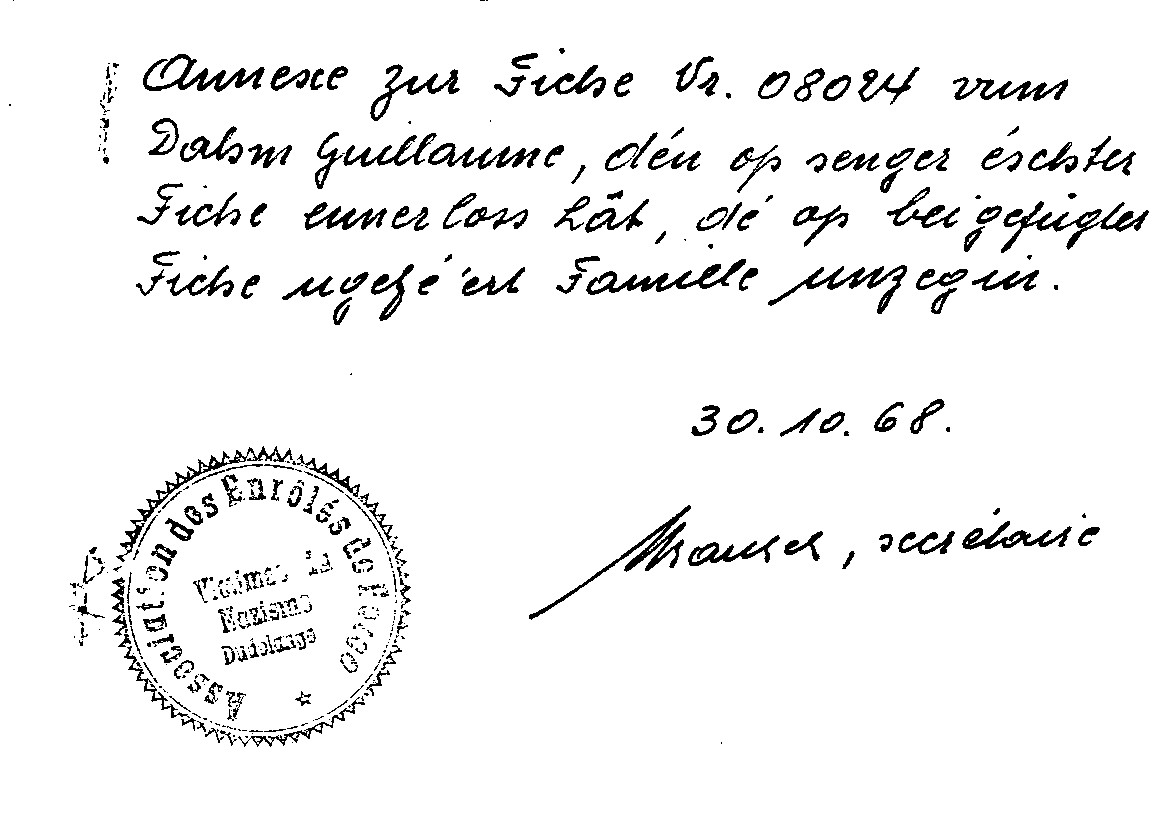 Annexe zur Fiche Nr. 08024 vum
Dahm Guillaume, dén op senger éschter
Fiche ennerloss hät, dé op beigefügter
Fiche ugefé'ert Famille unzeginn.
30.10.68.
, secrétaire
Association des Enrôlés de Force
Victimes du
Nazisme
Dudelange